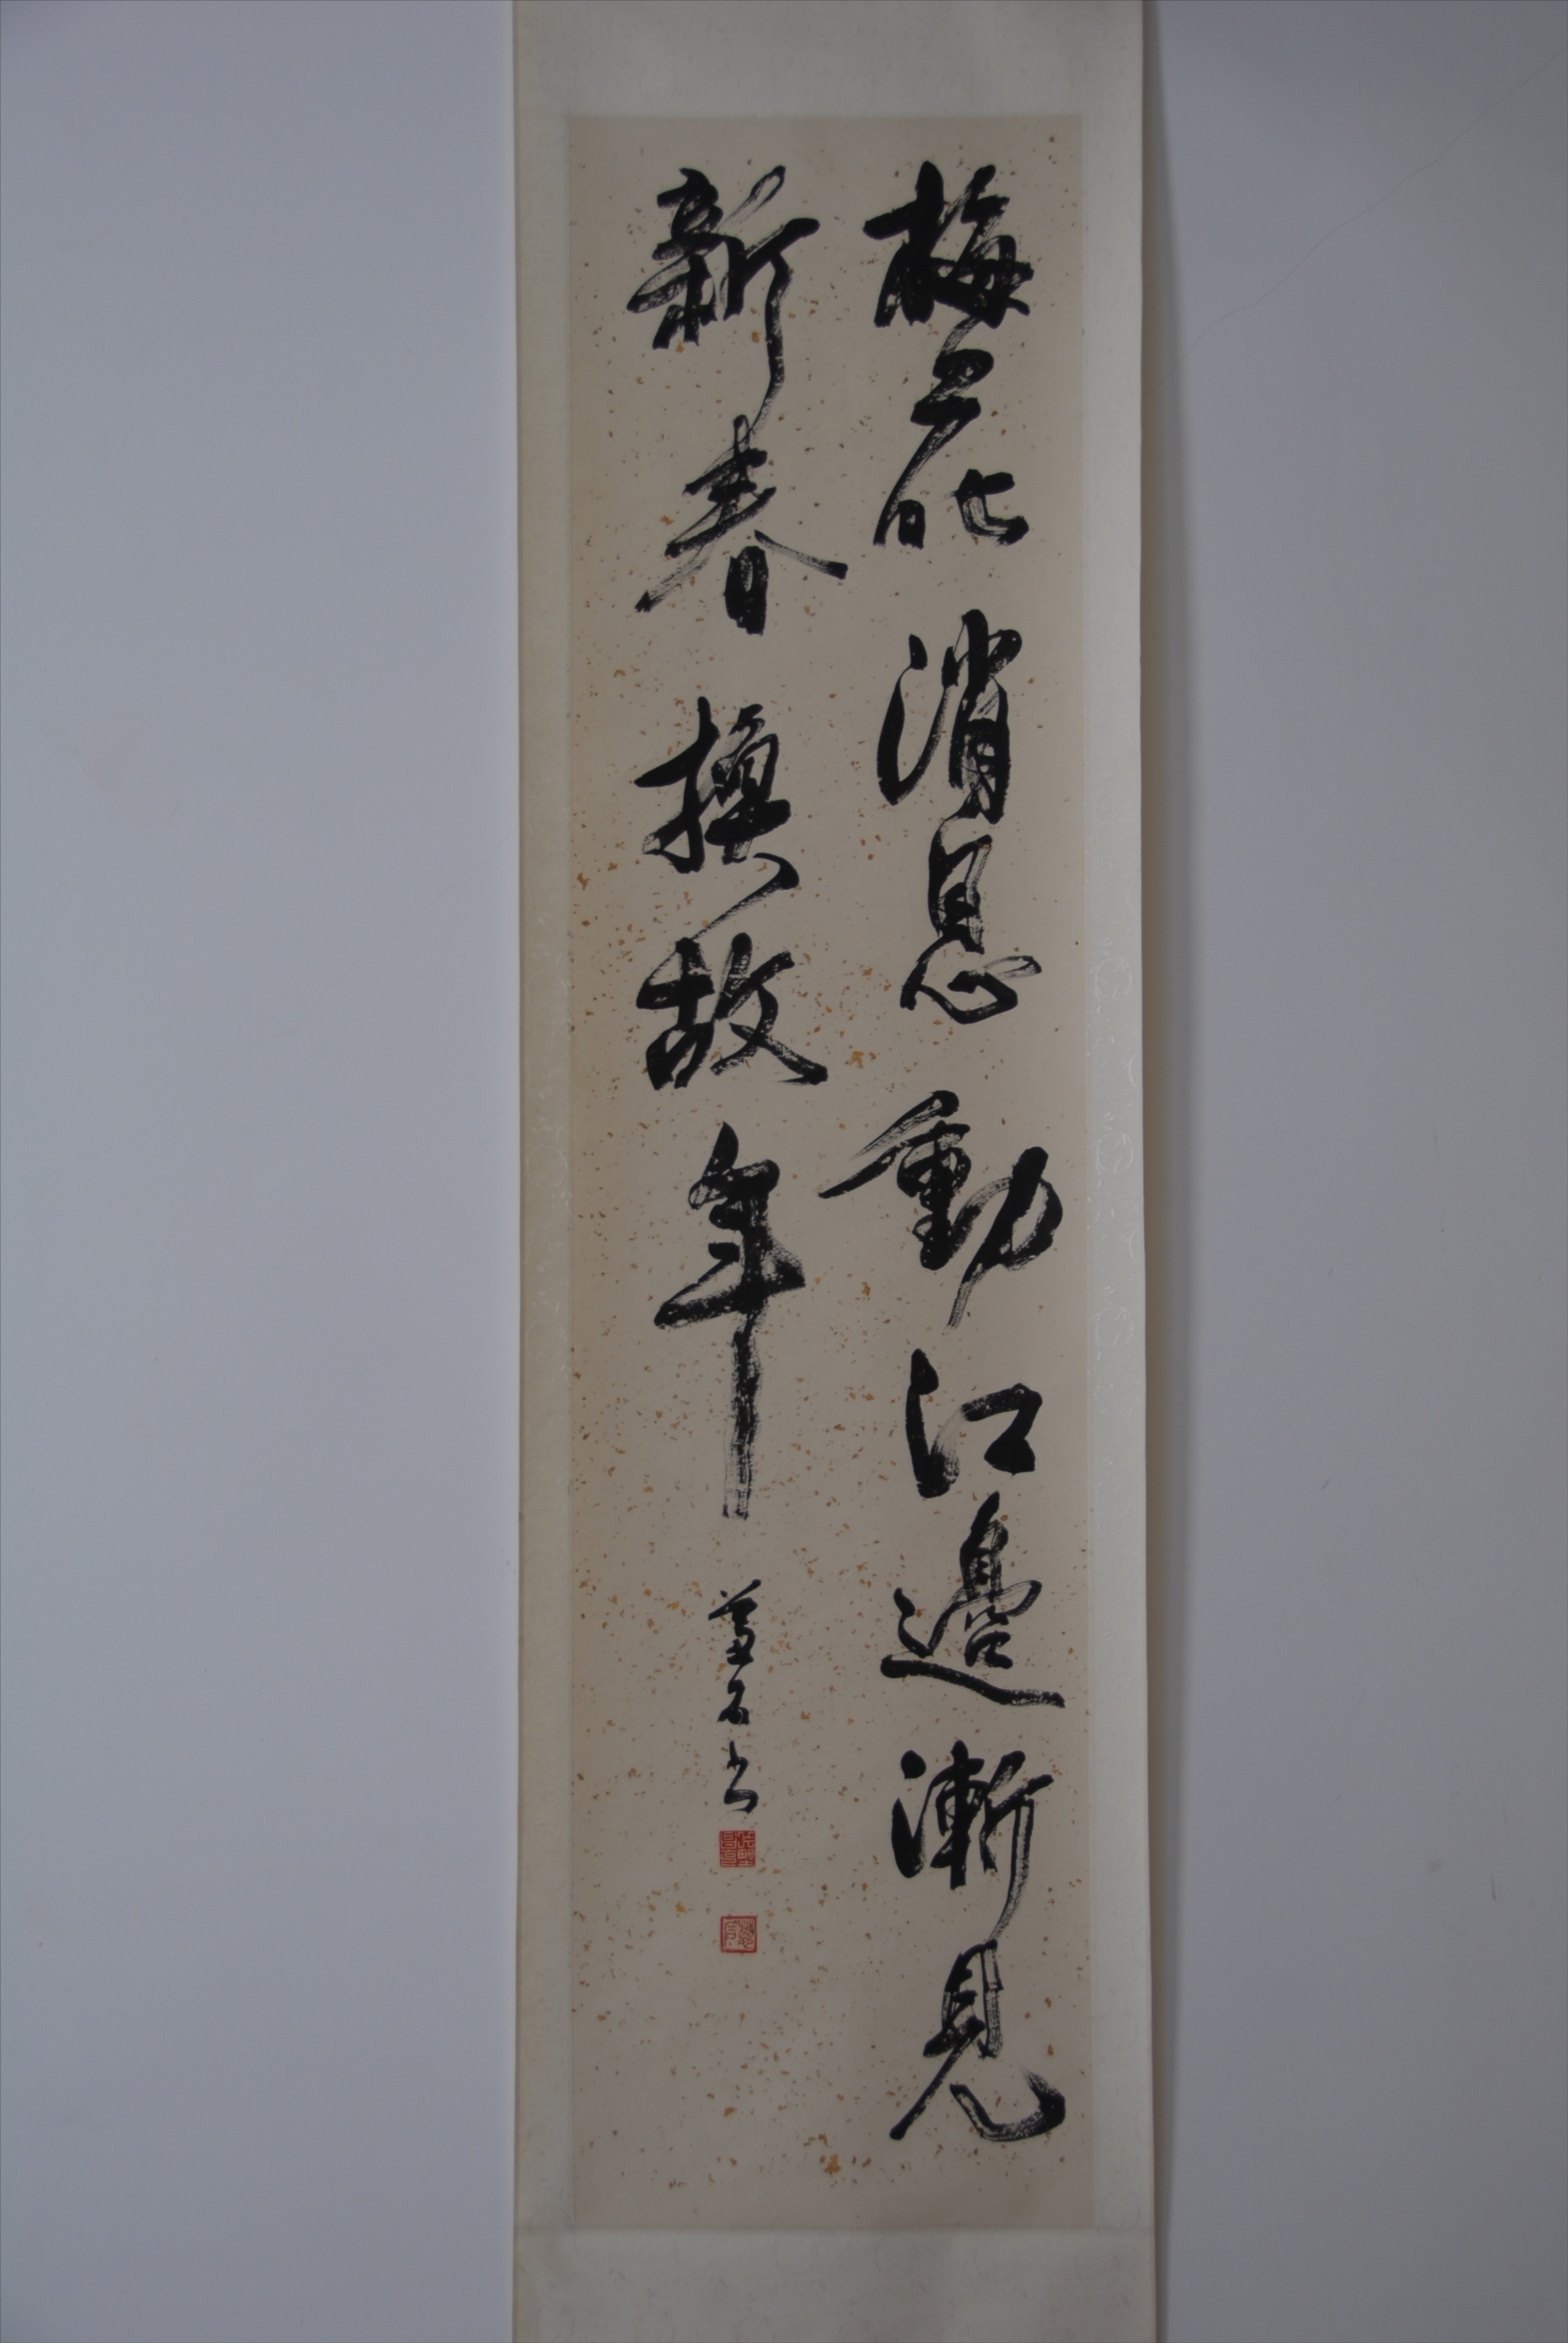 梅花消息動江邊漸見
新春換故年
書